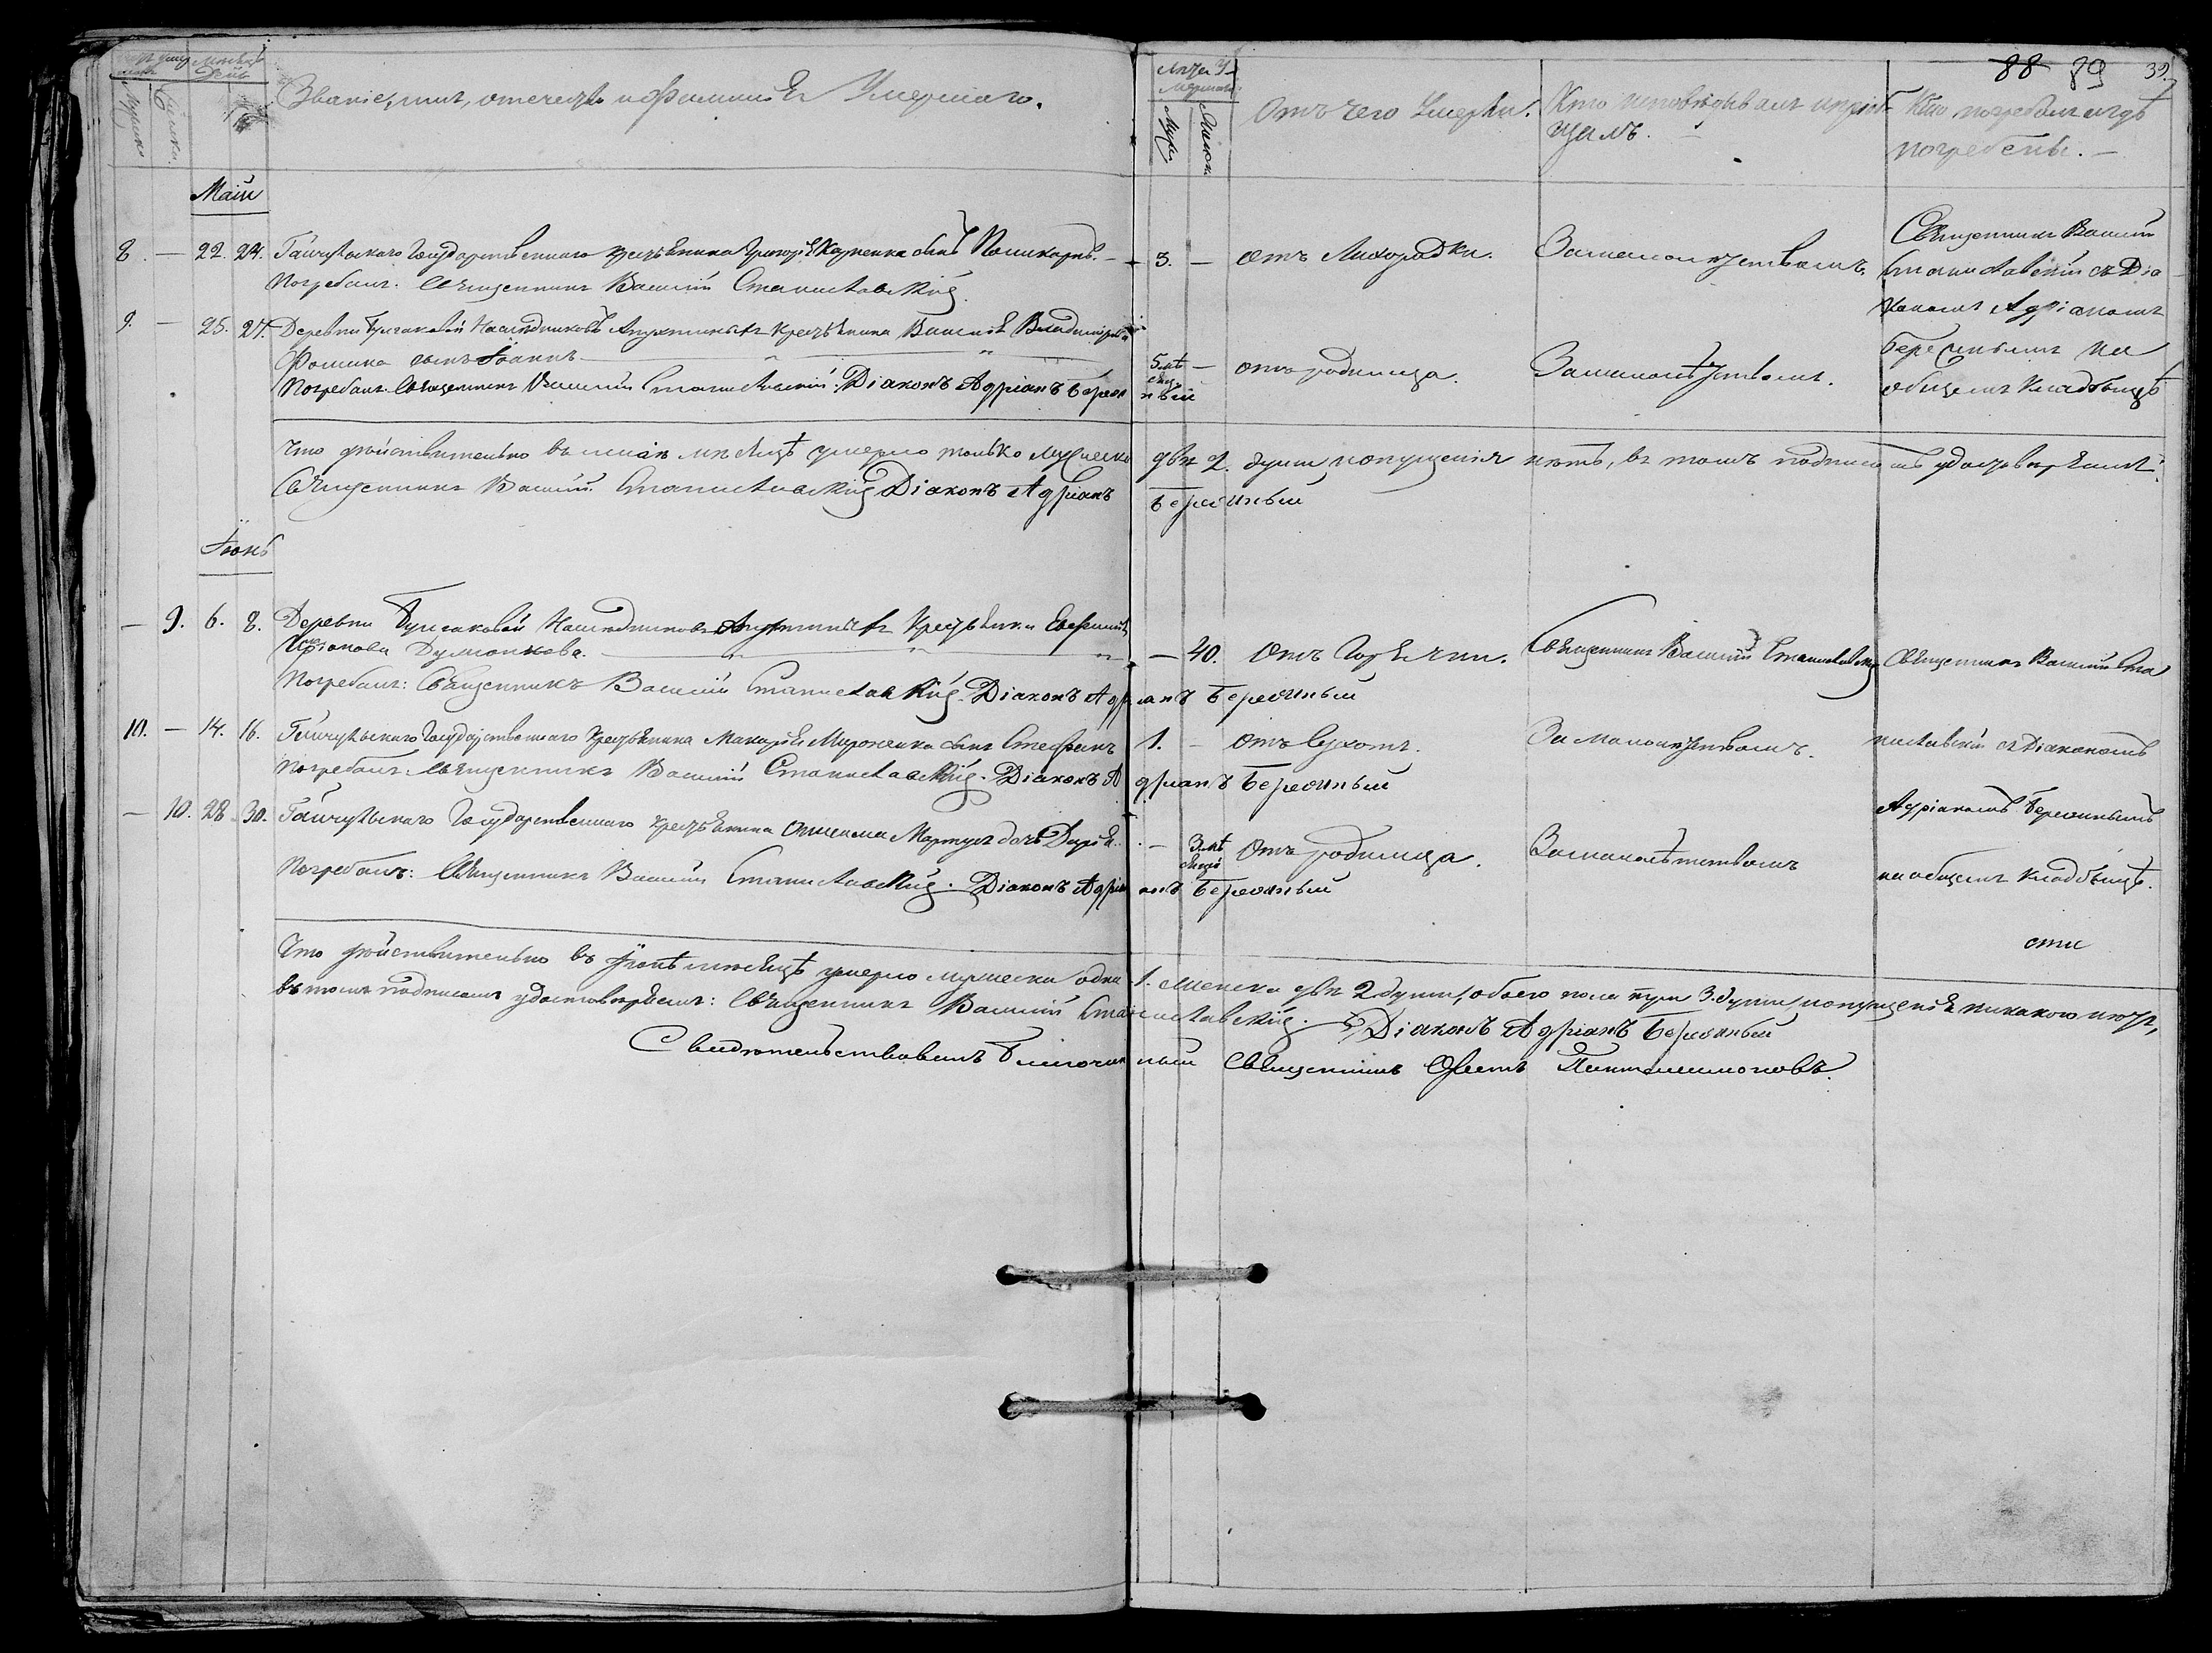 88 89 39.
Мѣсяцъ
День
Мужеска
Женска
Званіе, имя, отечество и фамилія Умершаго.
Лѣта У-
мершаго
Муж.
Женск.
Отъ чего Умерли.
Кто исповѣдывалъ и пріоб-
щалъ. –
Кто погребалъ и гдѣ
погребены. –
Маій
8. – 22. 24. Гайчульскаго Государственнаго крестьянина Григорія Карпенка сынъ Поликарпъ. –
Погребалъ: Священникъ Василій Станиславскій.
3. – Отъ Лихорадки. За малолѣтствомъ.
Священникъ Василій
Станиславскій съ Діа
кономъ Адріаномъ
Бересиньимъ на
общемъ кладбищѣ
9. – 25. 27. Деревни Наслѣдниковъ крестьянина Василія Владимірова
Фомина сынъ Іоаннъ
Погребалъ: Священникъ Василій Станиславскій. Діаконъ Адріанъ Береси
ньій
5 мѣ
сяц. – Отъ родимца. За малолѣтствомъ.
Что дѣйствительно въ маіи мѣсяцѣ умерло только мужеска двѣ 2. души, и опущенія нѣтъ, въ томъ подписомъ удостовѣряемъ:
Священникъ Василій Станиславскій Діаконъ Адріанъ Бересиньій
Іюнь
– 9. 6. 8. Деревни Наслѣдниковъ крестьянка Евфимія
Думанкова.
Погребалъ: Священникъ Василій Станиславскій. Діаконъ Адріанъ Бересиньій
– 40. Отъ Горячки. Священникъ Василій Станиславскій
Священникъ Василій Ста
ниславскій съ Діакономъ
Адріаномъ Бересиньимъ
на общемъ кладбищѣ.
10. – 14. 16. Гайчульскаго Государственнаго крестьянина Макарія Мироненка сынъ Стефанъ
Погребалъ: Священникъ Василій Станиславскій. Діаконъ Адріанъ Бересиньій
1. – Отъ Сухотъ. За малолѣтствомъ.
– 10. 28. 30. Гайчульскаго Государственнаго крестьянина дочь Дарія.
Погребалъ: Священникъ Василій Станиславскій. Діаконъ Адріанъ Бересиньій
– 3 мѣ
сяца Отъ родимца. За малолѣтствомъ
Что дѣйствительно въ Іюнѣ мѣсяцѣ умерло мужеска одна 1. женска двѣ 2. души, обоего пола три 3. души, и опущенія никакого нѣтъ,
въ томъ подписомъ удостовѣряемъ: Священникъ Василій Станиславскій. Діаконъ Адріанъ Бересиньій
Свидѣтельствовалъ Благочинный Священникъ Пантелимоновъ.